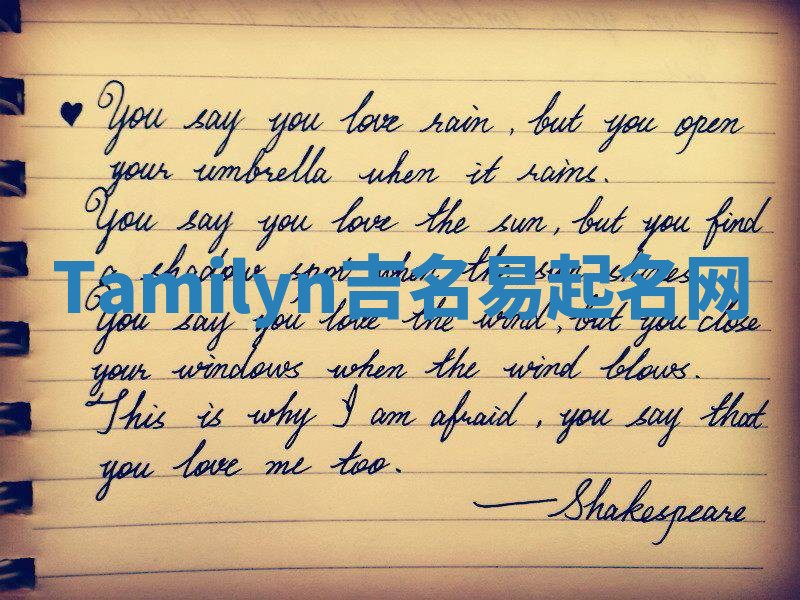 ♥ You say you love rain, but you open
your umbrella when it rains.
You say you love the sun, but you find
a shadow spot when the sun shines.
Tamilyn吉名易起名网
You say you love the wind, but you close
your windows when the wind blows.
This is why I am afraid, you say that
you love me too.
—Shakespeare